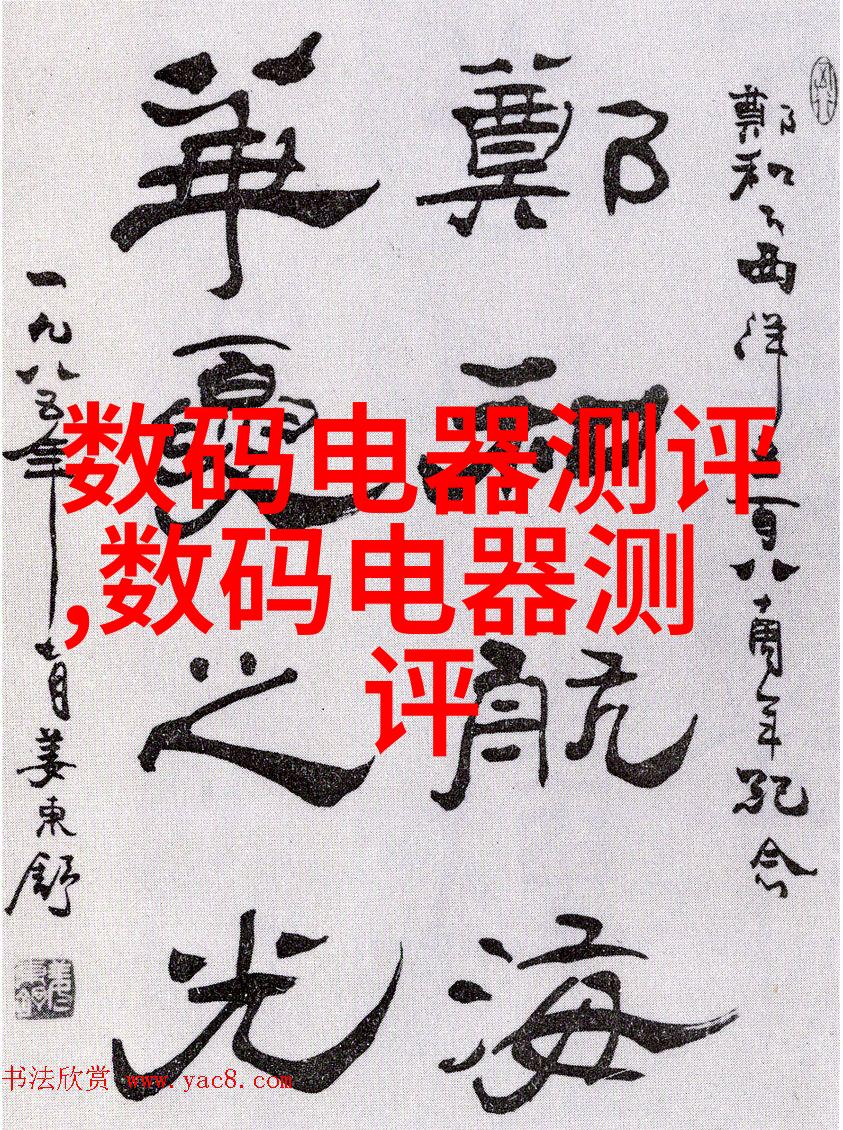 鄭和下西洋五百八十周年紀念
鄭和航海
華夏之光
一九八五年七月姜東舒
数码电器测评
,数码电器测
评
书法欣赏 www.yac8.com